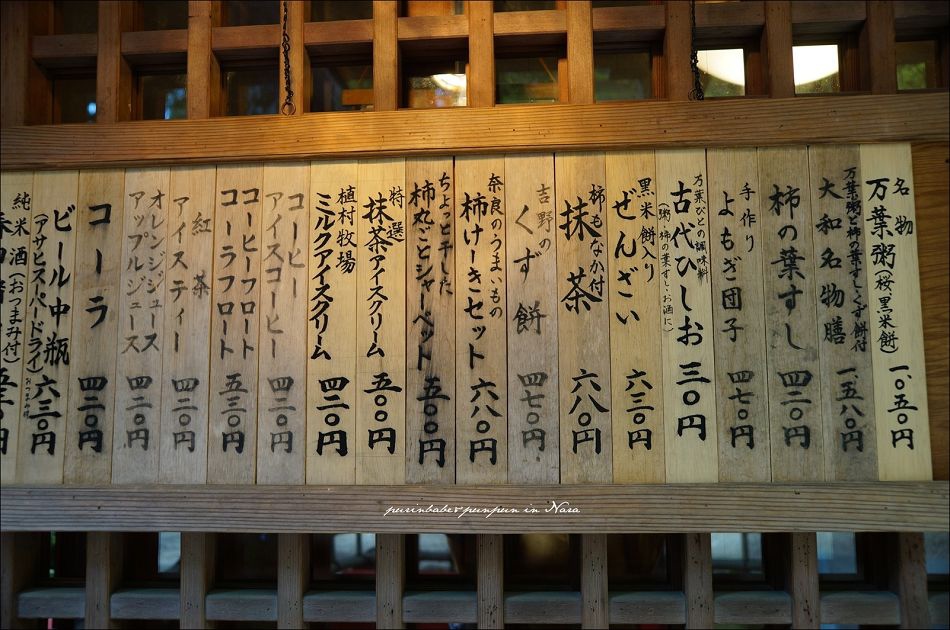 名物
万葉粥(桜・黒米餅)
一、〇五〇円
万葉粥・柿の葉すし・くず餅付
大和名物膳
一、五八〇円
柿の葉すし
四二〇円
手作り
よもぎ団子
四七〇円
万葉びとの調味料
古代ひしお
(粥・柿の葉すし・お酒に)
三〇円
黒米餅入り
ぜんざい
六三〇円
柿もなか付
抹茶
六八〇円
吉野の
くず餅
四七〇円
奈良のうまいもの
柿けーきセット
六八〇円
ちょっと干した
柿丸ごとシャーベット
五〇〇円
特選
抹茶アイスクリーム
五〇〇円
植村牧場
ミルクアイスクリーム
四二〇円
コーヒー
アイスコーヒー
四二〇円
コーヒーフロート
コーラフロート
五三〇円
紅茶
アイスティー
四二〇円
オレンジジュース
アップルジュース
四二〇円
コーラ
四二〇円
ビール中瓶
(アサヒスーパードライ)
おつまみ付
六三〇円
純米酒(おつまみ付)
purinbabe&punpun in Nara